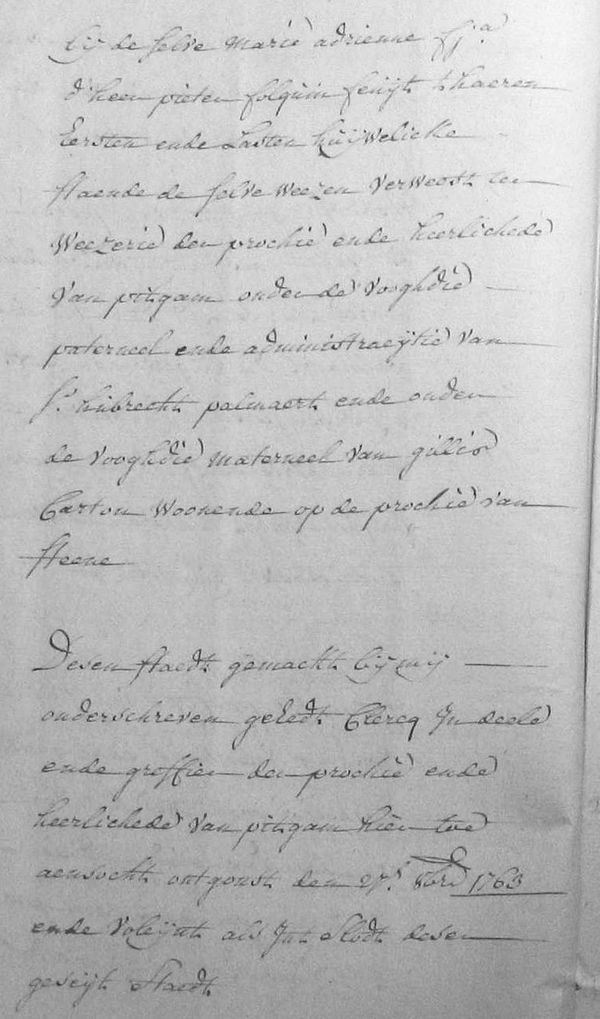 bij de selve marie adrienne fj.ª
d'heer pieter folquin feujt t'haeren
Eersten ende Lasten huijwelicke
staende de selve weezen verweest ter
Weezerie der prochie ende heerlichede
van pitgam onder de vooghdie
paterneel ende administraeytie van
Sr. hubrecht palmaert ende onder
de vooghdie materneel van gillis
Carton Woonende op de prochie van
steene
Desen staedt gemackt bij mij
onderschreven geEedt Clercq In deele
ende greffier der prochie ende
heerlichede van pitgam hier toe
aensocht ontgonst den 27.e 1763
ende voleijnt als Int Slodt deser
geseijt Staedt